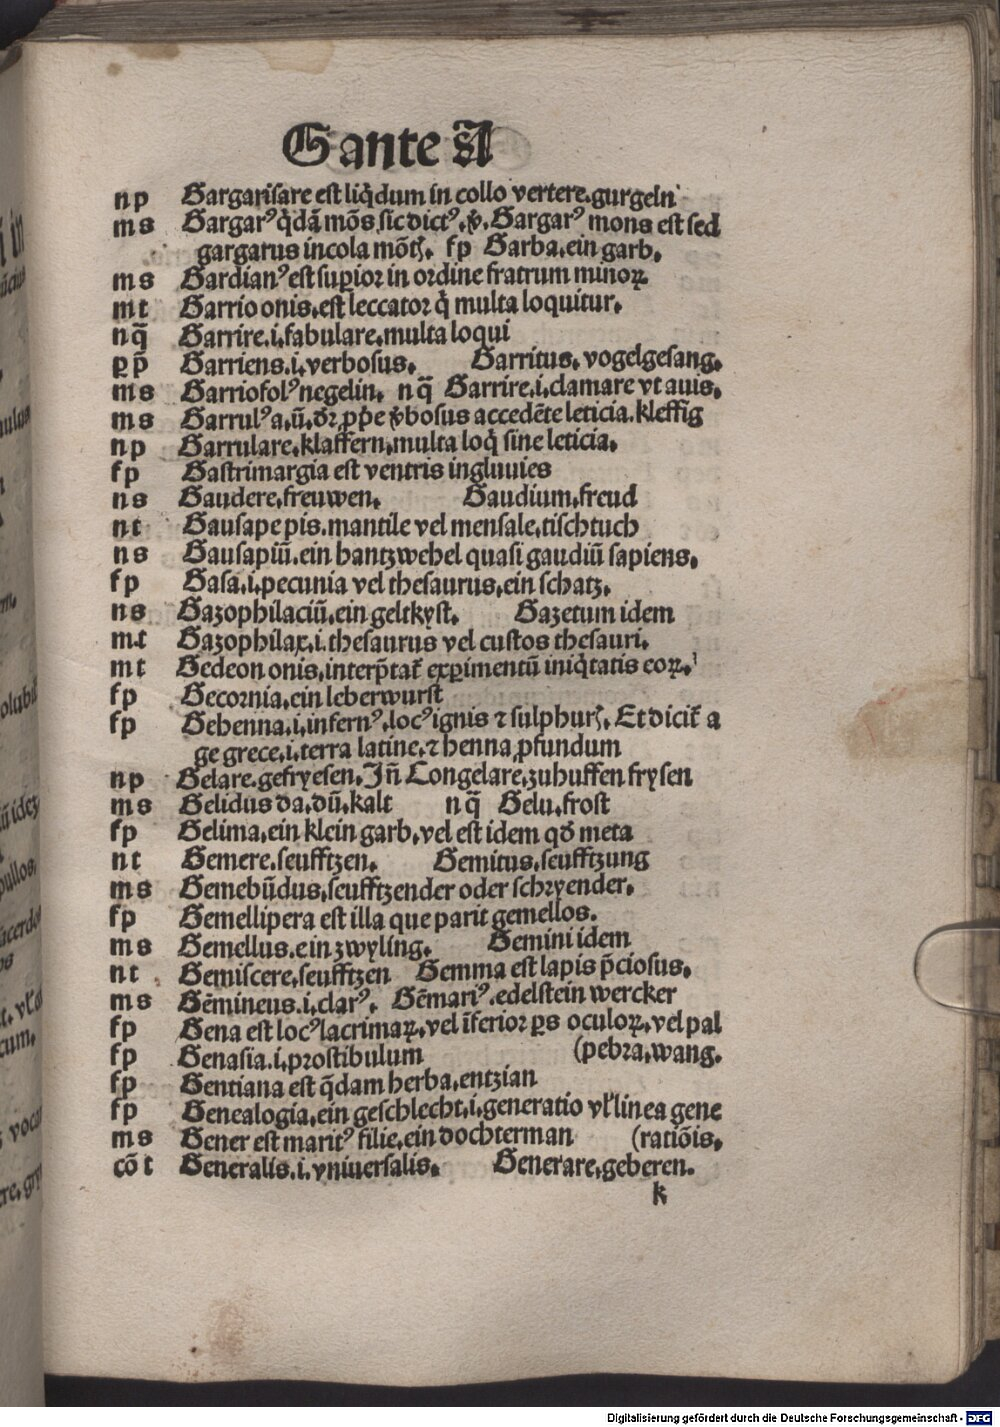 G ante A
n p Gargarisare est liq̇dum in collo vertere.gurgeln
m s Gargarꝰ q̇dā mōs sic dictꝰ.ꝟ. Gargarꝰ mons est sed
gargarus incola mōtꝭ. f p Garba.ein garb.
m s Gardianꝰ est suꝑior in ordine fratrum minoꝝ
m t Garrio onis.est leccator q̇ multa loquitur.
n q̄ Garrire.i.fabulare.multa loqui
ꝑ p̄ Garriens.i.verbosus. Garritus. vogelgesang.
m s Garriofolꝰ negelin. n q̄ Garrire.i.clamare vt auis.
m s Garrulꝰ a.ū. dr̄ ꝓpͥe ꝟbosus accedēte leticia. kleffig
n p Garrulare.klaffern.multa loq̇ sine leticia.
f p Gastrimargia est ventris ingluuies
n s Gaudere.freuwen. Gaudium.freud
n t Gausape pis.mantile vel mensale.tischtuch
n s Gausapiū.ein hantzwehel quasi gaudiū sapiens.
f p Gasa.i.pecunia vel thesaurus.ein schatz.
n s Gazophilaciū.ein geltkyst. Gazetum idem
m t Gazophilax.i.thesaurus vel custos thesauri.
m t Gedeon onis.interp̄tat᷑ exꝑimentū iniq̇tatis eoꝝ.
f p Gecornia.ein leberwurst
f p Gehenna.i.infernꝰ.locꝰ ignis ⁊ sulphurꝭ. Et dicit᷑ a
ge grece.i.terra latine.⁊ henna ꝓfundum
n p Gelare.gefryesen.Jn̄ Congelare.zuhuffen frysen
m s Gelidus da.dū.kalt n q̄ Gelu.frost
f p Gelima.ein klein garb.vel est idem qd̓ meta
n t Gemere.seufftzen. Gemitus.seufftzung
m s Gemebūdus.seufftzender oder schryender.
f p Gemellipera est illa que parit gemellos.
m s Gemellus.ein zwyling. Gemini idem
n t Gemiscere.seufftzen Gemma est lapis p̄ciosus.
m s Gēmineus.i.clarꝰ. Gēmariꝰ.edelstein wercker
f p Gena est locꝰ lacrimaꝝ.vel īferior ꝑs oculoꝝ.vel pal
f p Genasia.i.prostibulum (pebra.wang.
f p Gentiana est q̄dam herba.entzian
f p Genealogia.ein geschlecht.i.generatio vl̓ linea gene
m s Gener est maritꝰ filie.ein dochterman (ratiōis.
cō t Generalis.i.vniuersalis. Generare.geberen.
k
Digitalisierung gefördert durch die Deutsche Forschungsgemeinschaft - DFG